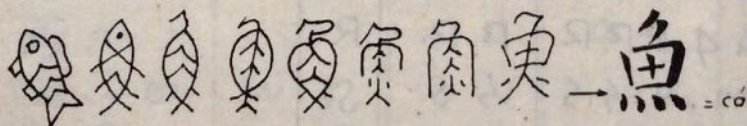 → 魚 = cá